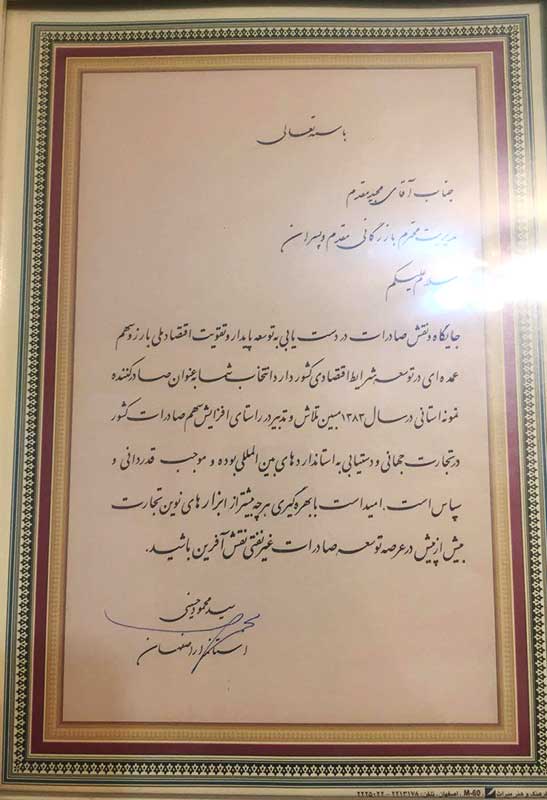 باسمه تعالی
جناب آقای مجید مقدم
مدیریت محترم بازرگانی مقدم و پسران
سلام علیکم
جایگاه و نقش صادرات در دست یابی به توسعه پایدار و تقویت اقتصاد ملی بارز و سهم
عمده ای در توسعه شرایط اقتصادی کشور دارد انتخاب شما به عنوان صادر کننده
نمونه استانی در سال ۱۳۸۳ مبین تلاش و تدبیر در راستای افزایش سهم صادرات کشور
در تجارت جهانی و دستیابی به استاندارد های بین المللی بوده و موجب قدردانی و
سپاس است. امید است با بهره گیری هر چه بیشتر از ابزار های نوین تجارت
بیش از پیش در عرصه توسعه صادرات غیر نفتی نقش آفرین باشید.
سید محمود حسینی
استاندار اصفهان
فرهنگ و هنر میراث M-60 . اصفهان . تلفن: ۲۲۱۳۱۷۸ - ۲۲۲۵۰۲۲